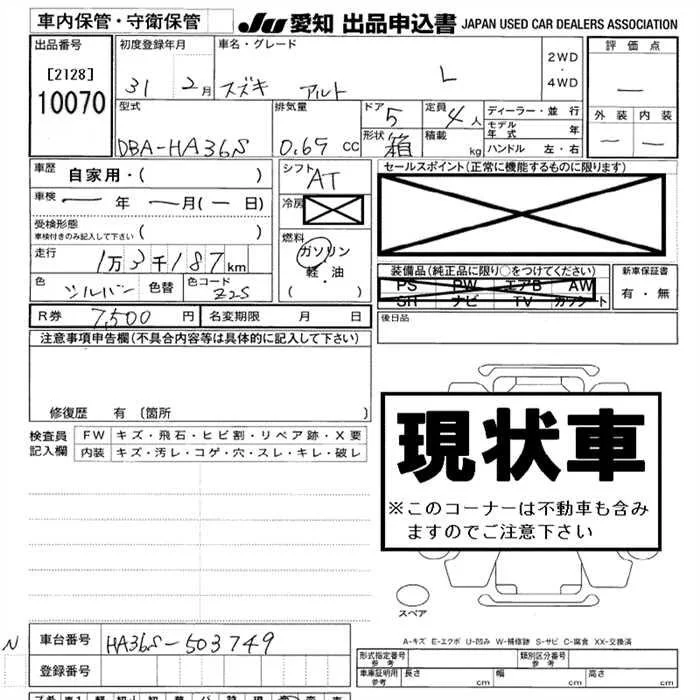 車内保管・守衛保管 JU 愛知 出品申込書 JAPAN USED CAR DEALERS ASSOCIATION
出品番号
[2128]
10070
初度登録年月
31 2月
車名・グレード
スズキ アルト L
2WD
・
4WD
評価点
ー
外装 内装
ー ー
型式
DBA-HA36S
排気量
0.65 cc
ドア 5
形状 箱
定員 4人
積載 kg
ディーラー・並行
モデル年式 年
ハンドル 左・右
車歴 自家用・( )
車検 ー 年 ー月(ー日)
受検形態
車検付きのみ記入して下さい ( )
走行 1万3千187km
色 シルバー 色替 色コード Z2S
シフト AT
冷房
燃料
ガソリン
軽・油
( ・ )
セールスポイント(正常に機能するものに限ります)
装備品(純正品に限り○をつけてください)
PS PW エアB AW
SH ナビ TV カワシート
新車保証書
有・無
R券 7,500 円 名変期限 月 日
後日品
注意事項申告欄(不具合内容等は具体的に記入して下さい)
修復歴 有 〔箇所 〕
検査員記入欄
FW キズ・飛石・ヒビ割・リペア跡・X要
内装 キズ・汚レ・コゲ・穴・スレ・キレ・破レ
現状車
※このコーナーは不動車も含み
ますのでご注意下さい
スペア
A-キズ E-エクボ U-凹み W-補修跡 S-サビ C-腐食 XX-交換済
N 車台番号 HA36S-503749
登録番号
形式指定番号 参考
類別区分番号 参考
車庫証明用 参考 長さ cm 幅 cm 高さ cm